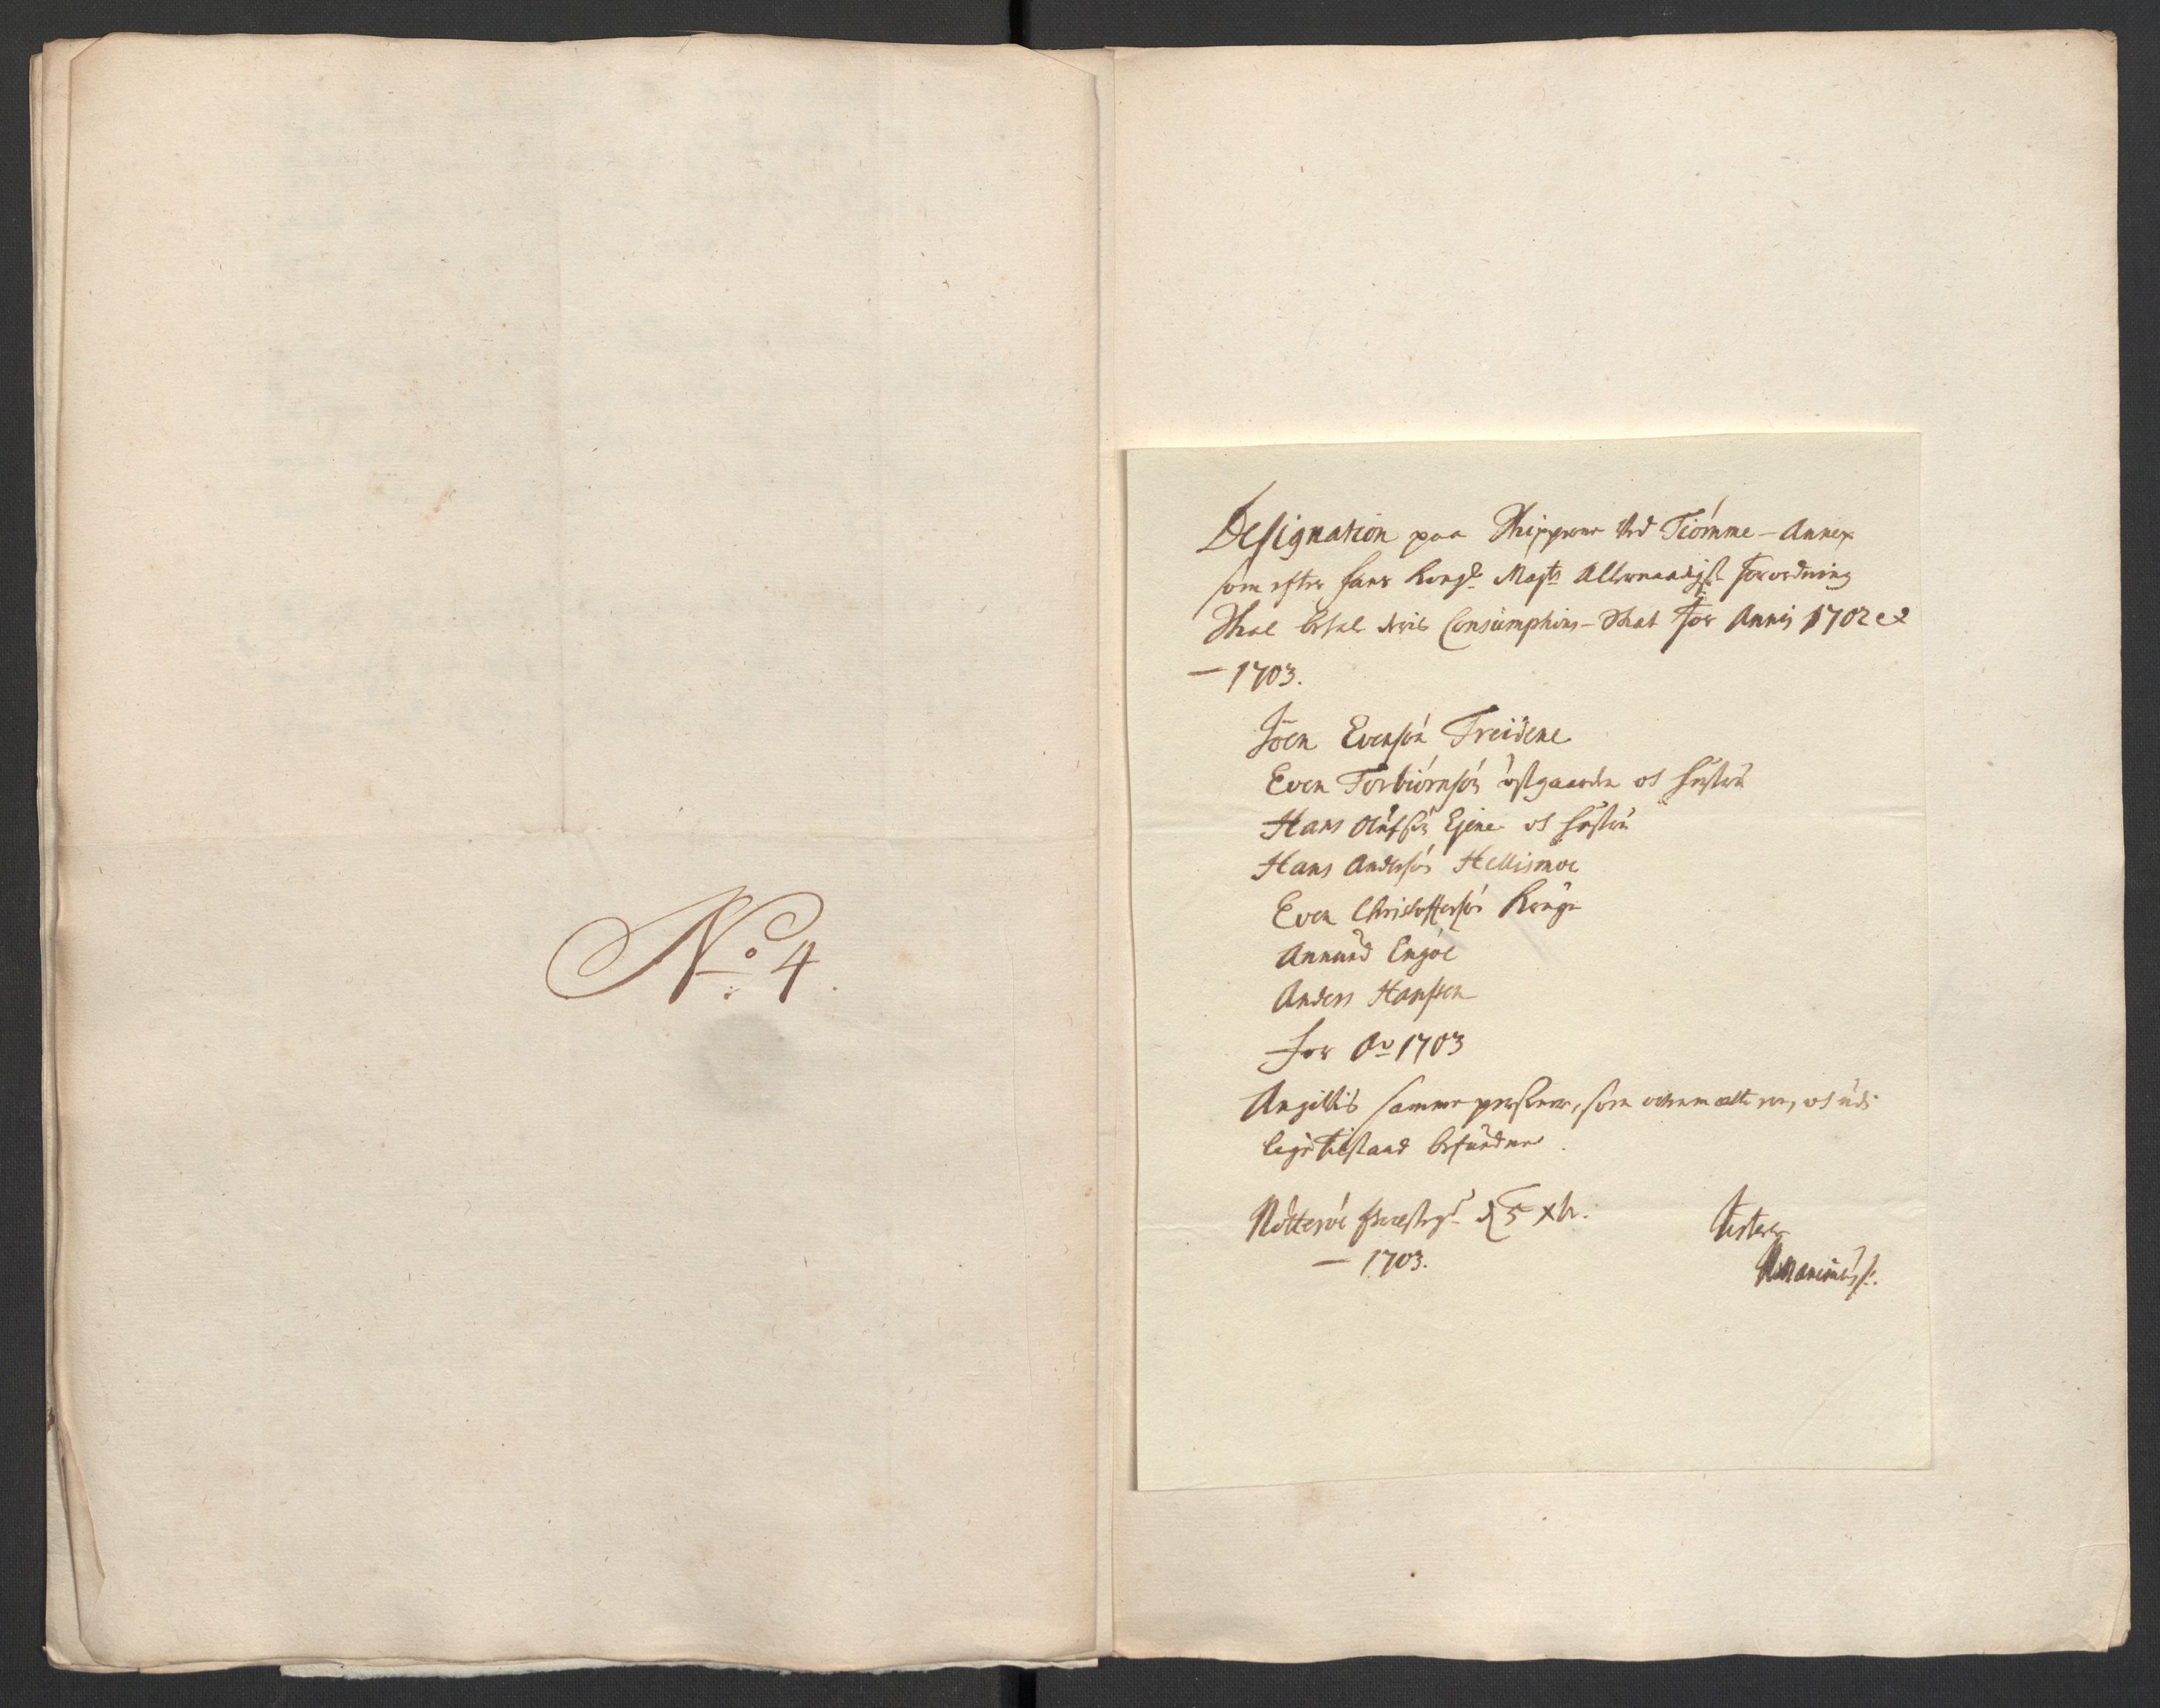 No 4.
Designation paa Skipperne Ved Tiømme - Annex
som efter hans Kongl Mayts Allernaadigst forordning
Skal betale deris Consumptions - Skat for Annis 1702 et
— 1703.
Joen Evensøn Treidene
Even Torbiørnsøn østgaarden og hustru
Hans Olufsøn Ejene og hustru
Hans Andersøn Hellismoe
Even Christoffersøn Kruge
Annund Engøe
Anders Hanssen
for Ao 1703
Angifvis samme personer, som og udi
lige tilstand befundne.
Nøtterøe præstegd d 5 xbr.
— 1703.
tester